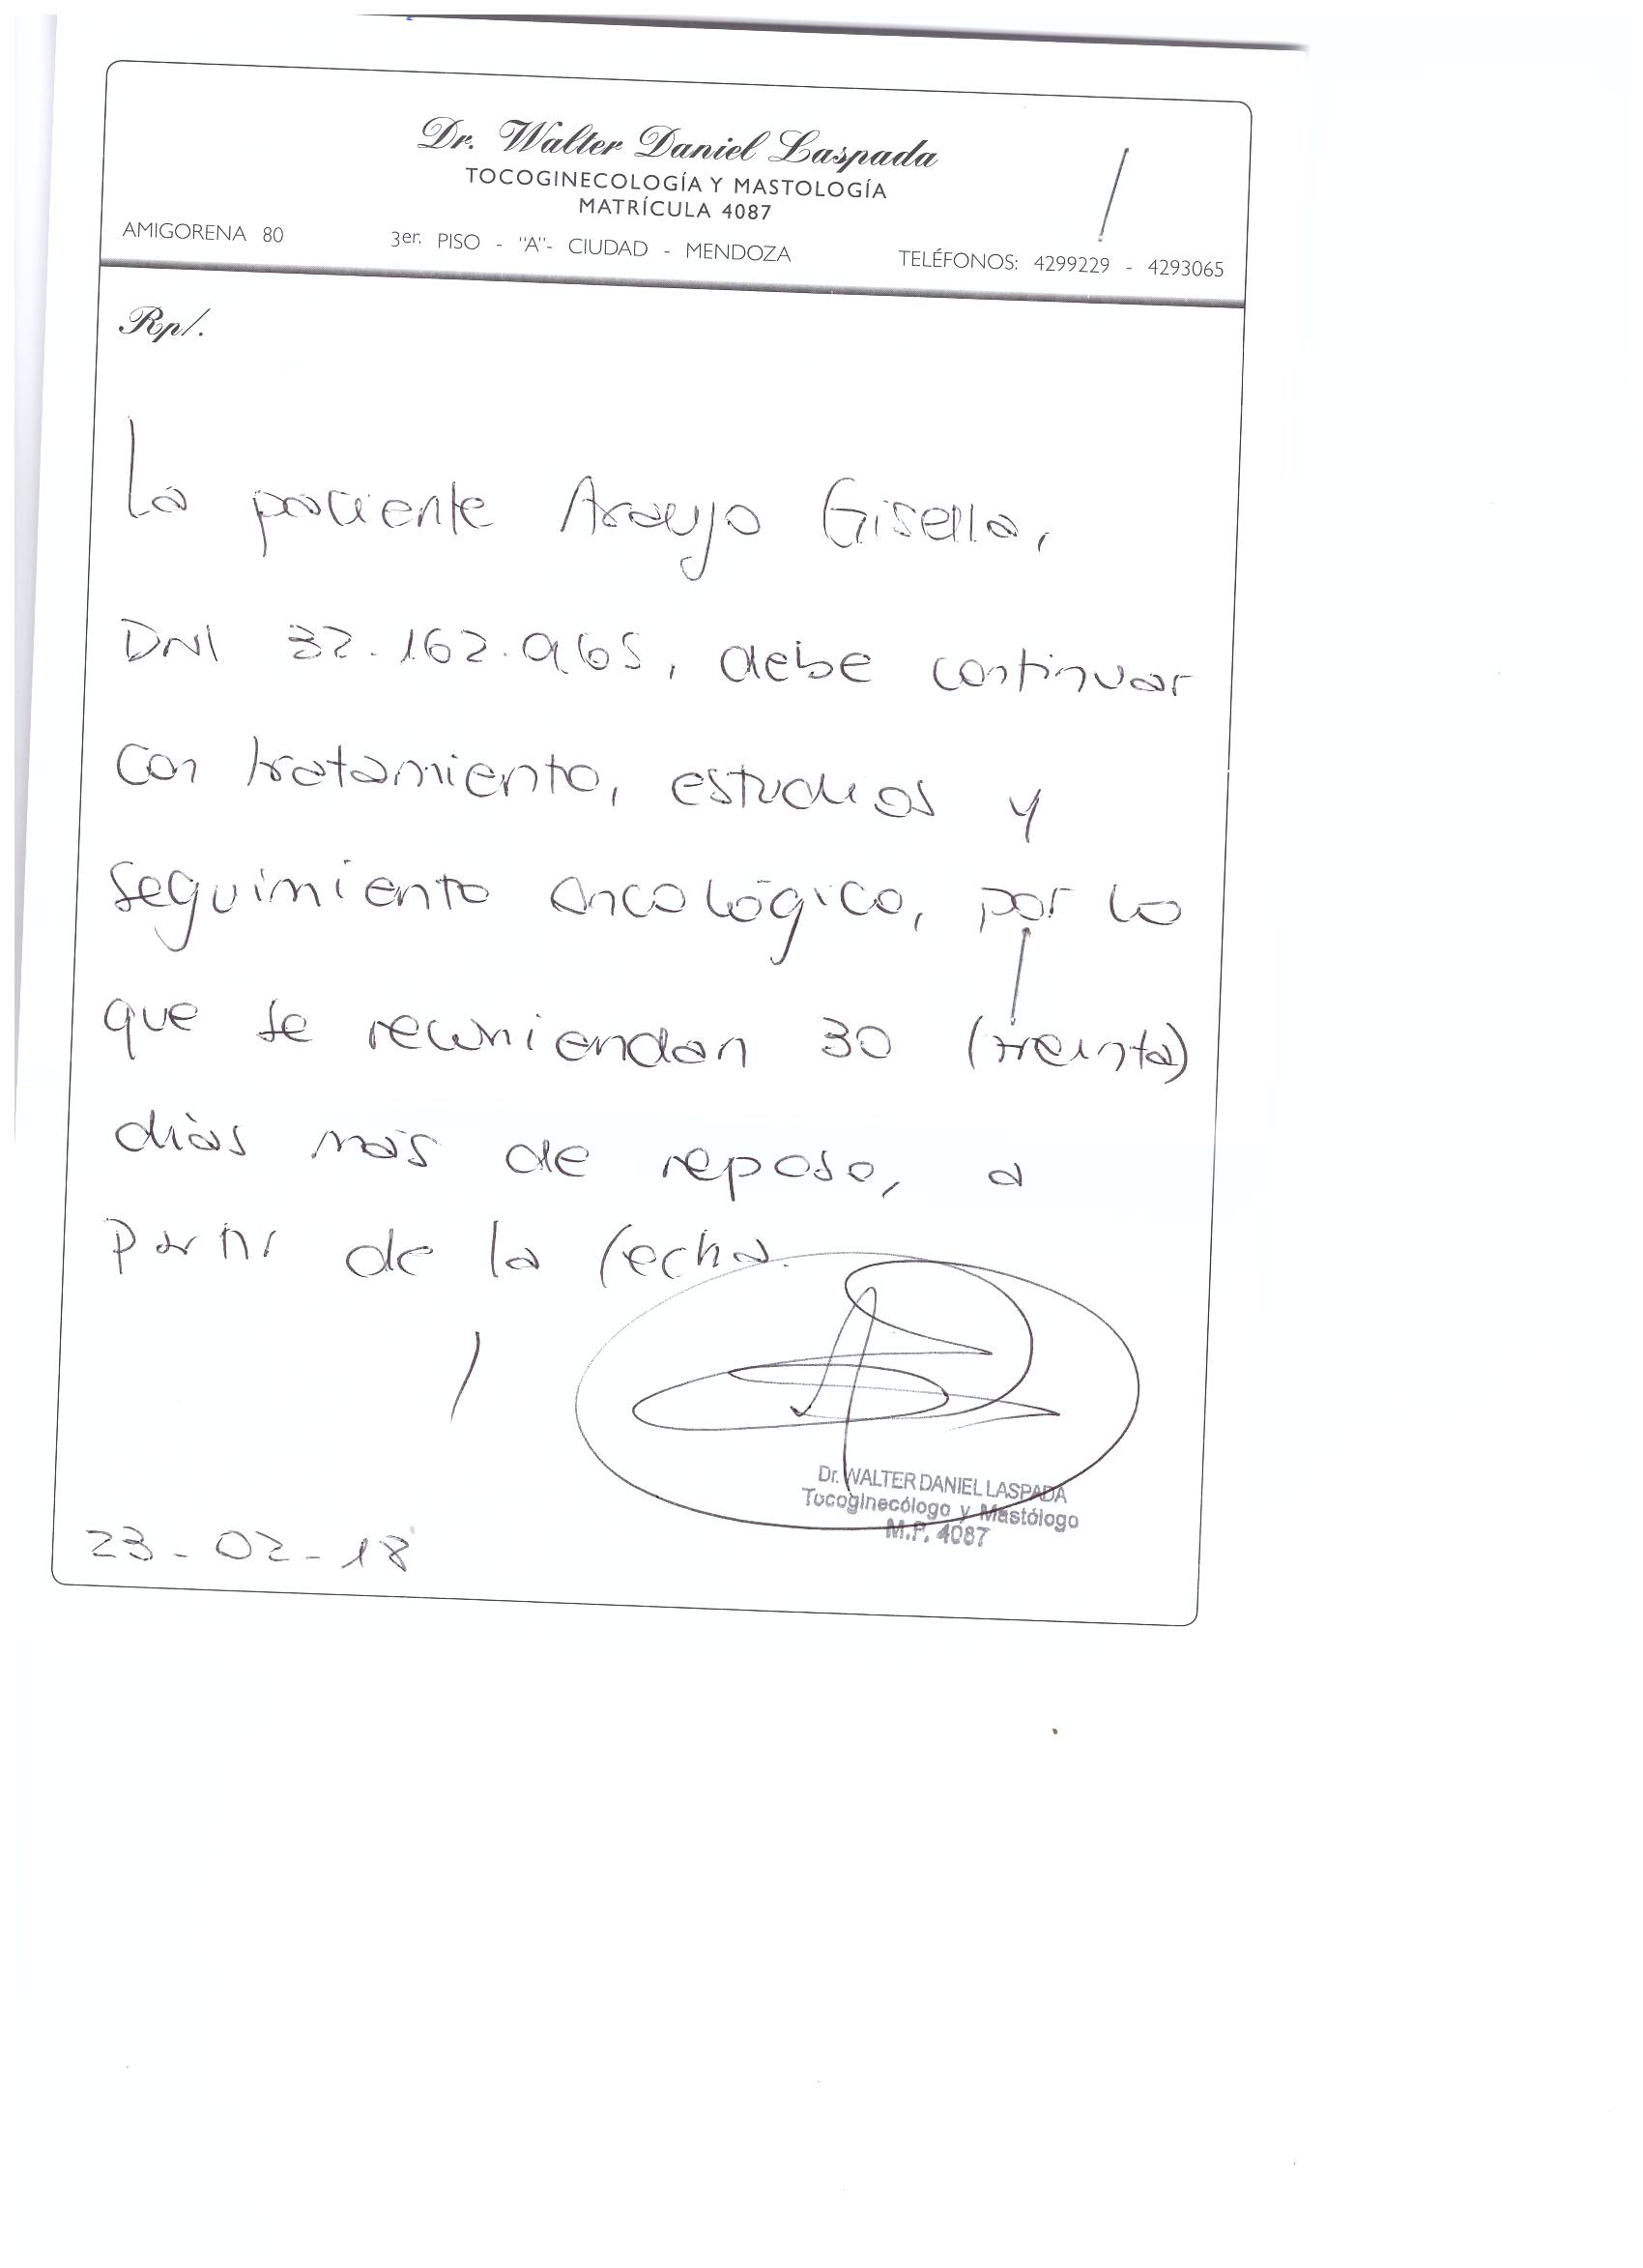 Dr. Walter Daniel Laspada
TOCOGINECOLOGÍA Y MASTOLOGÍA
MATRÍCULA 4087
AMIGORENA 80 3er. PISO - "A"- CIUDAD - MENDOZA TELÉFONOS: 4299229 - 4293065
Rp/.
La paciente Araujo Gisella,
DNI 32.162.965, debe continuar
con tratamiento, estudios y
seguimiento oncológico, por lo
que se recomiendan 30 (treinta)
días más de reposo, a
partir de la fecha.
Dr. WALTER DANIEL LASPADA
Tocoginecólogo y Mastólogo
M.P. 4087
23-02-18